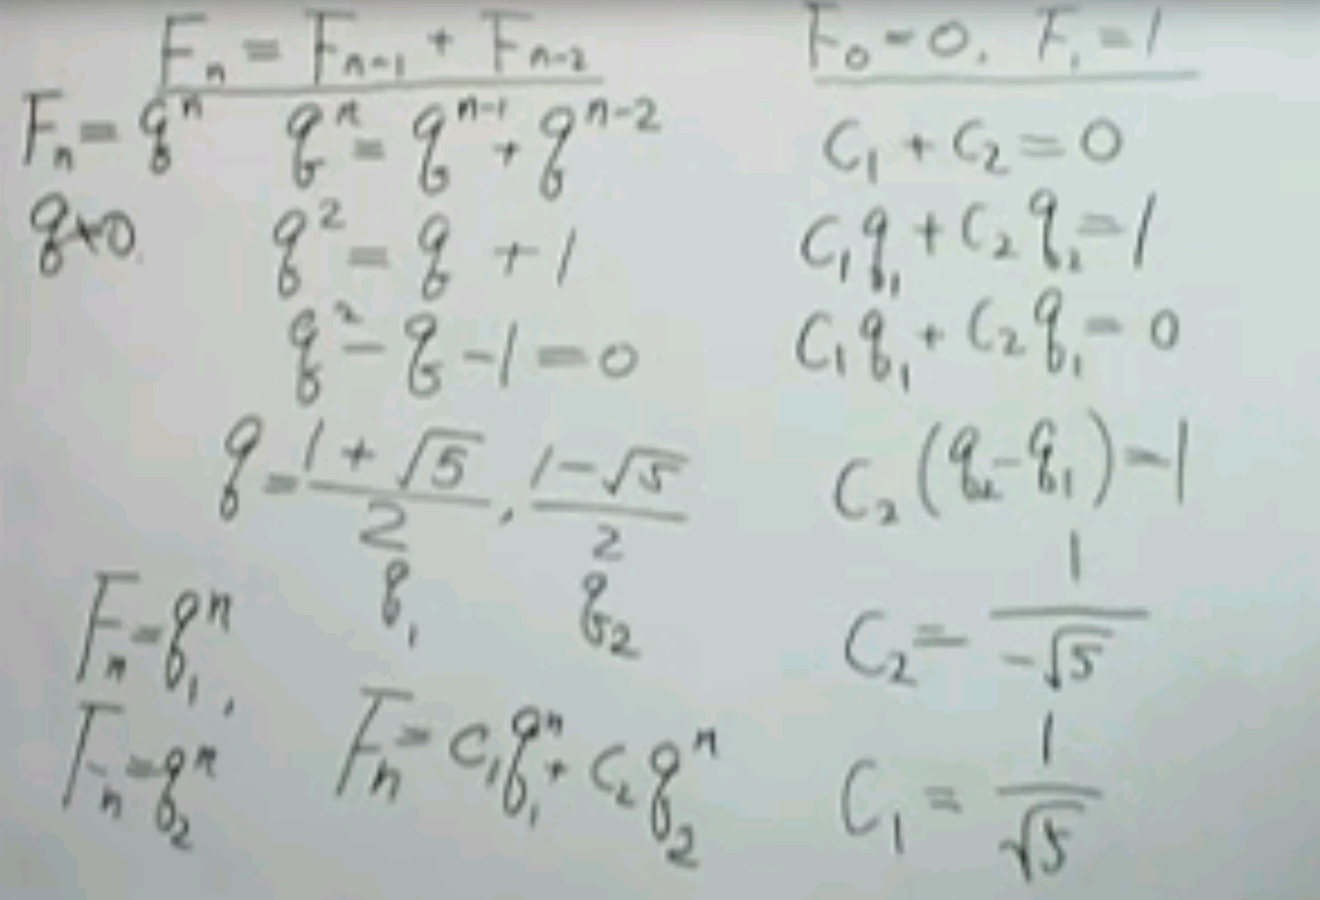 Fₙ = Fₙ₋₁ + Fₙ₋₂
Fₙ = qⁿ qⁿ = qⁿ⁻¹ + qⁿ⁻²
q ≠ 0.
q² = q + 1
q² - q - 1 = 0
q = (1 + √5)/2 , (1 - √5)/2
q₁ q₂
Fₙ = q₁ⁿ,
Fₙ = q₂ⁿ
Fₙ = c₁q₁ⁿ + c₂q₂ⁿ
F₀ = 0. F₁ = 1
C₁ + C₂ = 0
C₁q₁ + C₂q₂ = 1
C₁q₁ + C₂q₁ = 0
C₂(q₂ - q₁) = 1
C₂ = 1/(-√5)
C₁ = 1/√5